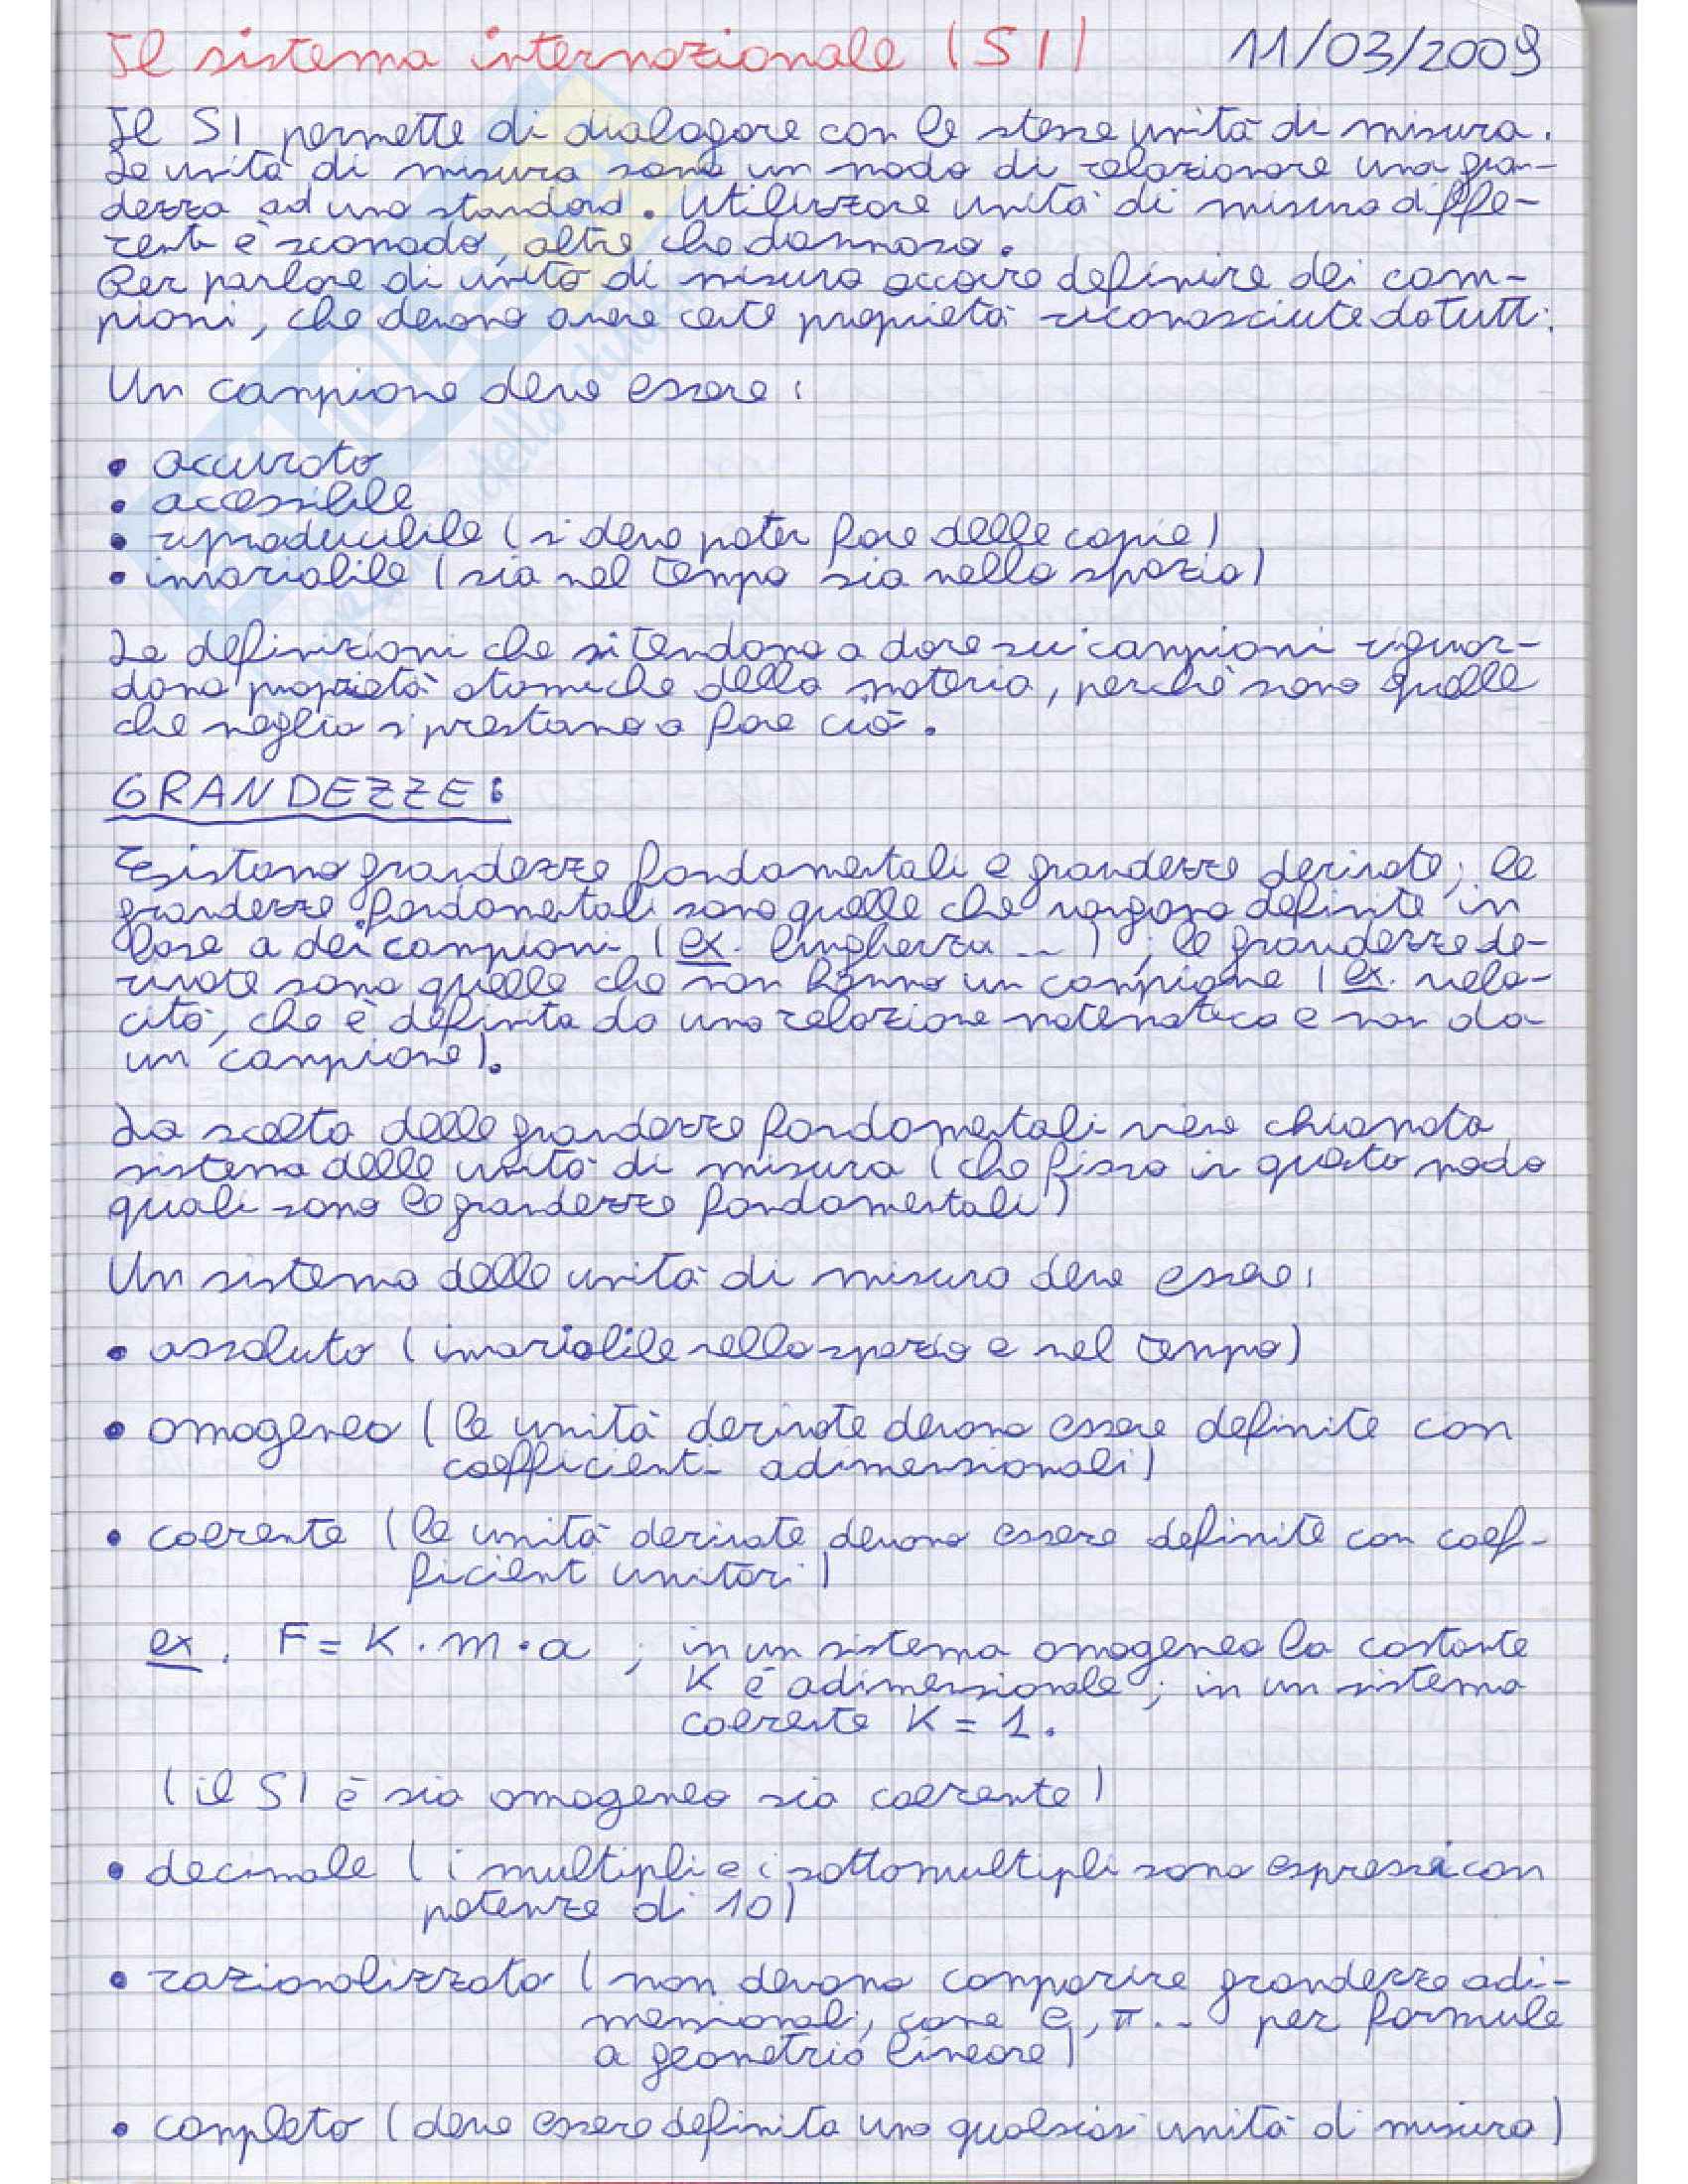 Il sistema internazionale (SI) 11/03/2009
Il SI permette di dialogare con le stesse unità di misura.
Le unità di misura sono un modo di relazionare una gran-
dezza ad uno standard. Utilizzare unità di misura diffe-
renti è scomodo, oltre che dannoso.
Per parlare di unità di misura occorre definire dei cam-
pioni, che devono avere certe proprietà riconosciute da tutti.
Un campione deve essere:
• accurato
• accessibile
• riproducibile (si deve poter fare delle copie)
• invariabile (sia nel tempo sia nello spazio)
Le definizioni che si tendono a dare sui campioni riguar-
dano proprietà atomiche della materia, perchè sono quelle
che meglio si prestano a fare ciò.
GRANDEZZE:
Esistono grandezze fondamentali e grandezze derivate; le
grandezze fondamentali sono quelle che vengono definite in
base a dei campioni (ex. lunghezza ...); le grandezze de-
rivate sono quelle che non hanno un campione (ex. velo-
cità, che è definita da una relazione matematica e non da
un campione).
La scelta delle grandezze fondamentali viene chiamata
sistema delle unità di misura (che fissa in questo modo
quali sono le grandezze fondamentali)
Un sistema delle unità di misura deve essere:
• assoluto (invariabile nello spazio e nel tempo)
• omogeneo (le unità derivate devono essere definite con
coefficienti adimensionali)
• coerente (le unità derivate devono essere definite con coef-
ficienti unitari)
ex. F = K · m · a ; in un sistema omogeneo la costante
K è adimensionale; in un sistema
coerente K = 1.
(il SI è sia omogeneo sia coerente)
• decimale (i multipli e i sottomultipli sono espressi con
potenze di 10)
• razionalizzato (non devono comparire grandezze adi-
mensionali, come e, π... per formule
a geometria lineare)
• completo (deve essere definita una qualsiasi unità di misura)